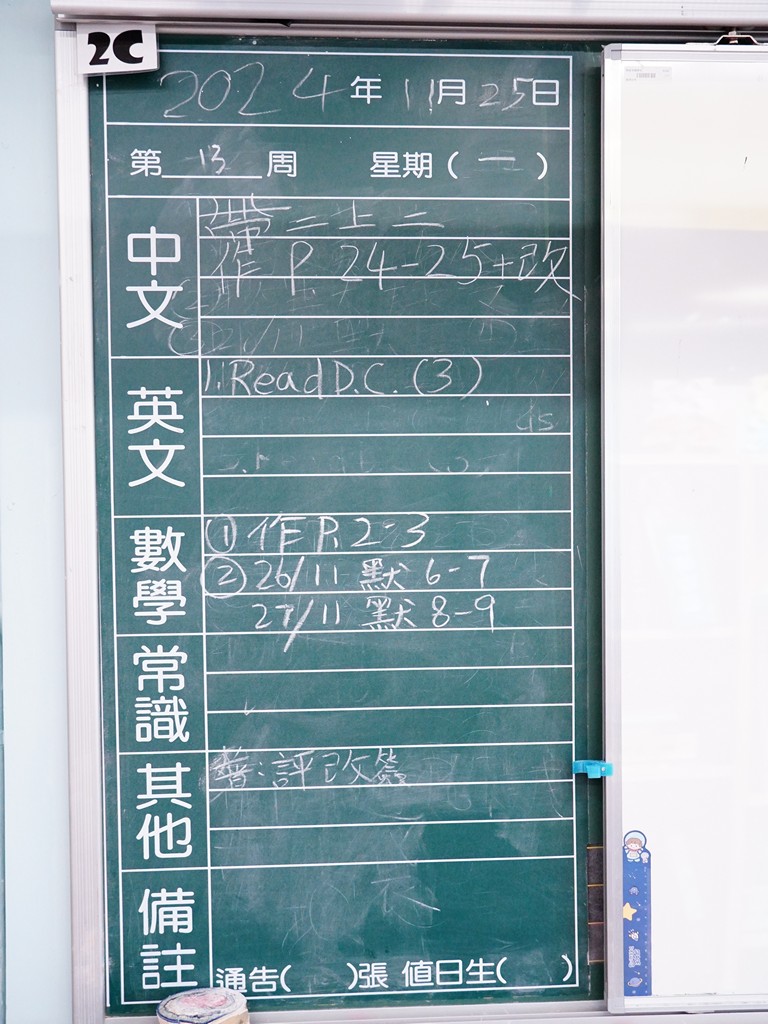 2C
2024年11月25日
第13周 星期(一)
中文
帶二上二
作 P. 24-25+改
英文
1. Read D.C. (3)
數學
① 作 P. 2-3
② 26/11 默 6-7
27/11 默 8-9
常識
其他
普:評改簽
備註
通告( )張 值日生( )